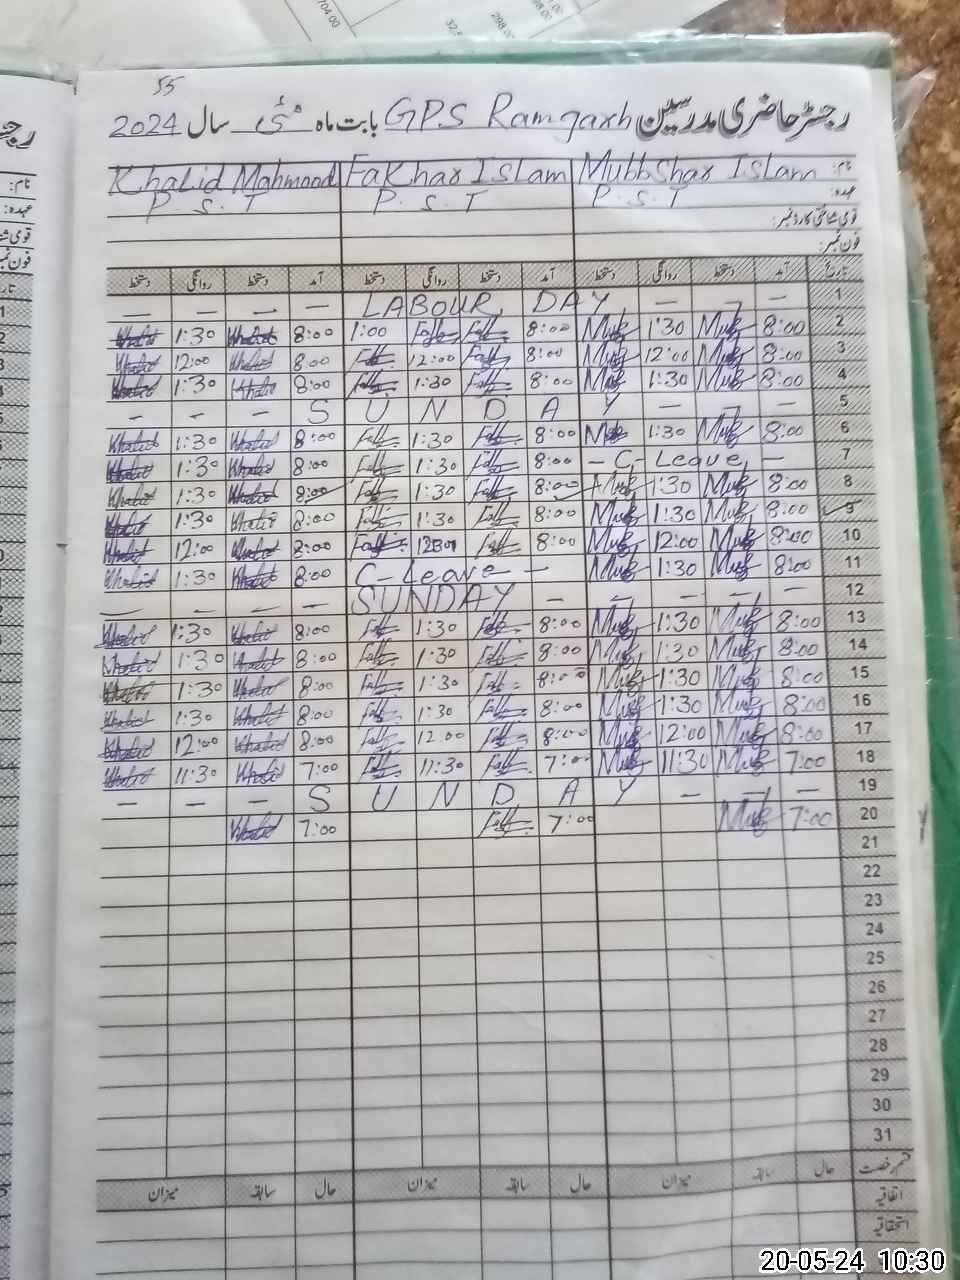 704.00
298.00
55
رجسٹر حاضری مدرسین GPS Ramgarh بابت ماہ مئی سال 2024
نام: Mubbshar Islam Fakhar Islam Khalid Mahmood
عہدہ: P.S.T P.S.T P.S.T
قومی شناختی کارڈ نمبر:
فون نمبر:
تاریخ آمد دستخط روانگی دستخط آمد دستخط روانگی دستخط آمد دستخط روانگی دستخط
— — — — LABOUR DAY — — — 1
Khalid 1:30 Khalid 8:00 1:00 8:00 Mub 1:30 Mub 8:00 2
Khalid 12:00 Khalid 8:00 12:00 8:00 Mub 12:00 Mub 8:00 3
Khalid 1:30 Khalid 8:00 1:30 8:00 Mub 1:30 Mub 8:00 4
— — — S U N D A Y — — — 5
Khalid 1:30 Khalid 8:00 1:30 8:00 Mub 1:30 Mub 8:00 6
Khalid 1:30 Khalid 8:00 1:30 8:00 — C-Leave — 7
Khalid 1:30 Khalid 8:00 1:30 8:00 Mub 1:30 Mub 8:00 8
Khalid 1:30 Khalid 8:00 1:30 8:00 Mub 1:30 Mub 8:00 9
Khalid 12:00 Khalid 8:00 8:00 Mub 12:00 Mub 8:00 10
Khalid 1:30 Khalid 8:00 C-Leave — Mub 1:30 Mub 8:00 11
— — — — SUNDAY — — — — — 12
Khalid 1:30 Khalid 8:00 1:30 8:00 Mub 1:30 Mub 8:00 13
Khalid 1:30 Khalid 8:00 1:30 8:00 Mub 1:30 Mub 8:00 14
Khalid 1:30 Khalid 8:00 1:30 8:00 Mub 1:30 Mub 8:00 15
Khalid 1:30 Khalid 8:00 1:30 8:00 Mub 1:30 Mub 8:00 16
Khalid 12:00 Khalid 8:00 12:00 8:00 Mub 12:00 Mub 8:00 17
Khalid 11:30 Khalid 7:00 11:30 7:00 Mub 11:30 Mub 7:00 18
— — — S U N D A Y — — — 19
Khalid 7:00 7:00 Mub 7:00 20
21
22
23
24
25
26
27
28
29
30
31
قسم رخصت حال سابقہ میزان حال سابقہ میزان حال سابقہ میزان
اتفاقیہ
استحقاقیہ
20-05-24 10:30